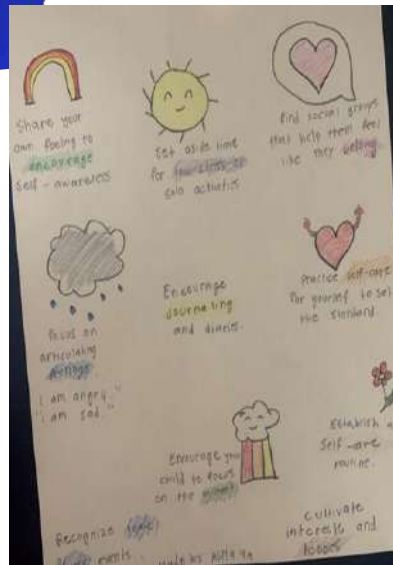 Share your
own feeling to
encourage
self-awareness
Set aside time
for low-stress or
solo activities
Find social groups
that help them feel
like they belong.
Focus on
articulating
feelings.
"I am angry."
"I am sad."
Encourage
journaling
and diaries.
Practice self-care
for yourself to set
the standard.
Encourage your
child to focus
on the
Establish a
self-care
routine.
Recognize
Cultivate
interests and